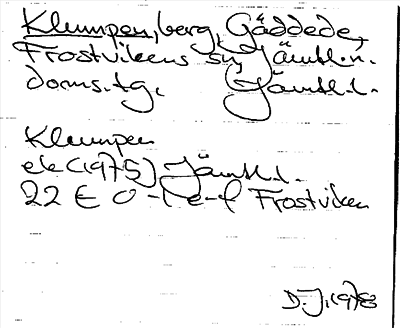 Klumpen, berg, Gäddede,
Frostvikens sn, Jämtl.n.
doms.tg. Jämtl.l.
Klumpen
ek (1975) Jämtl.l.
22 E 0-1 e-f Frostviken
D.J. 1978